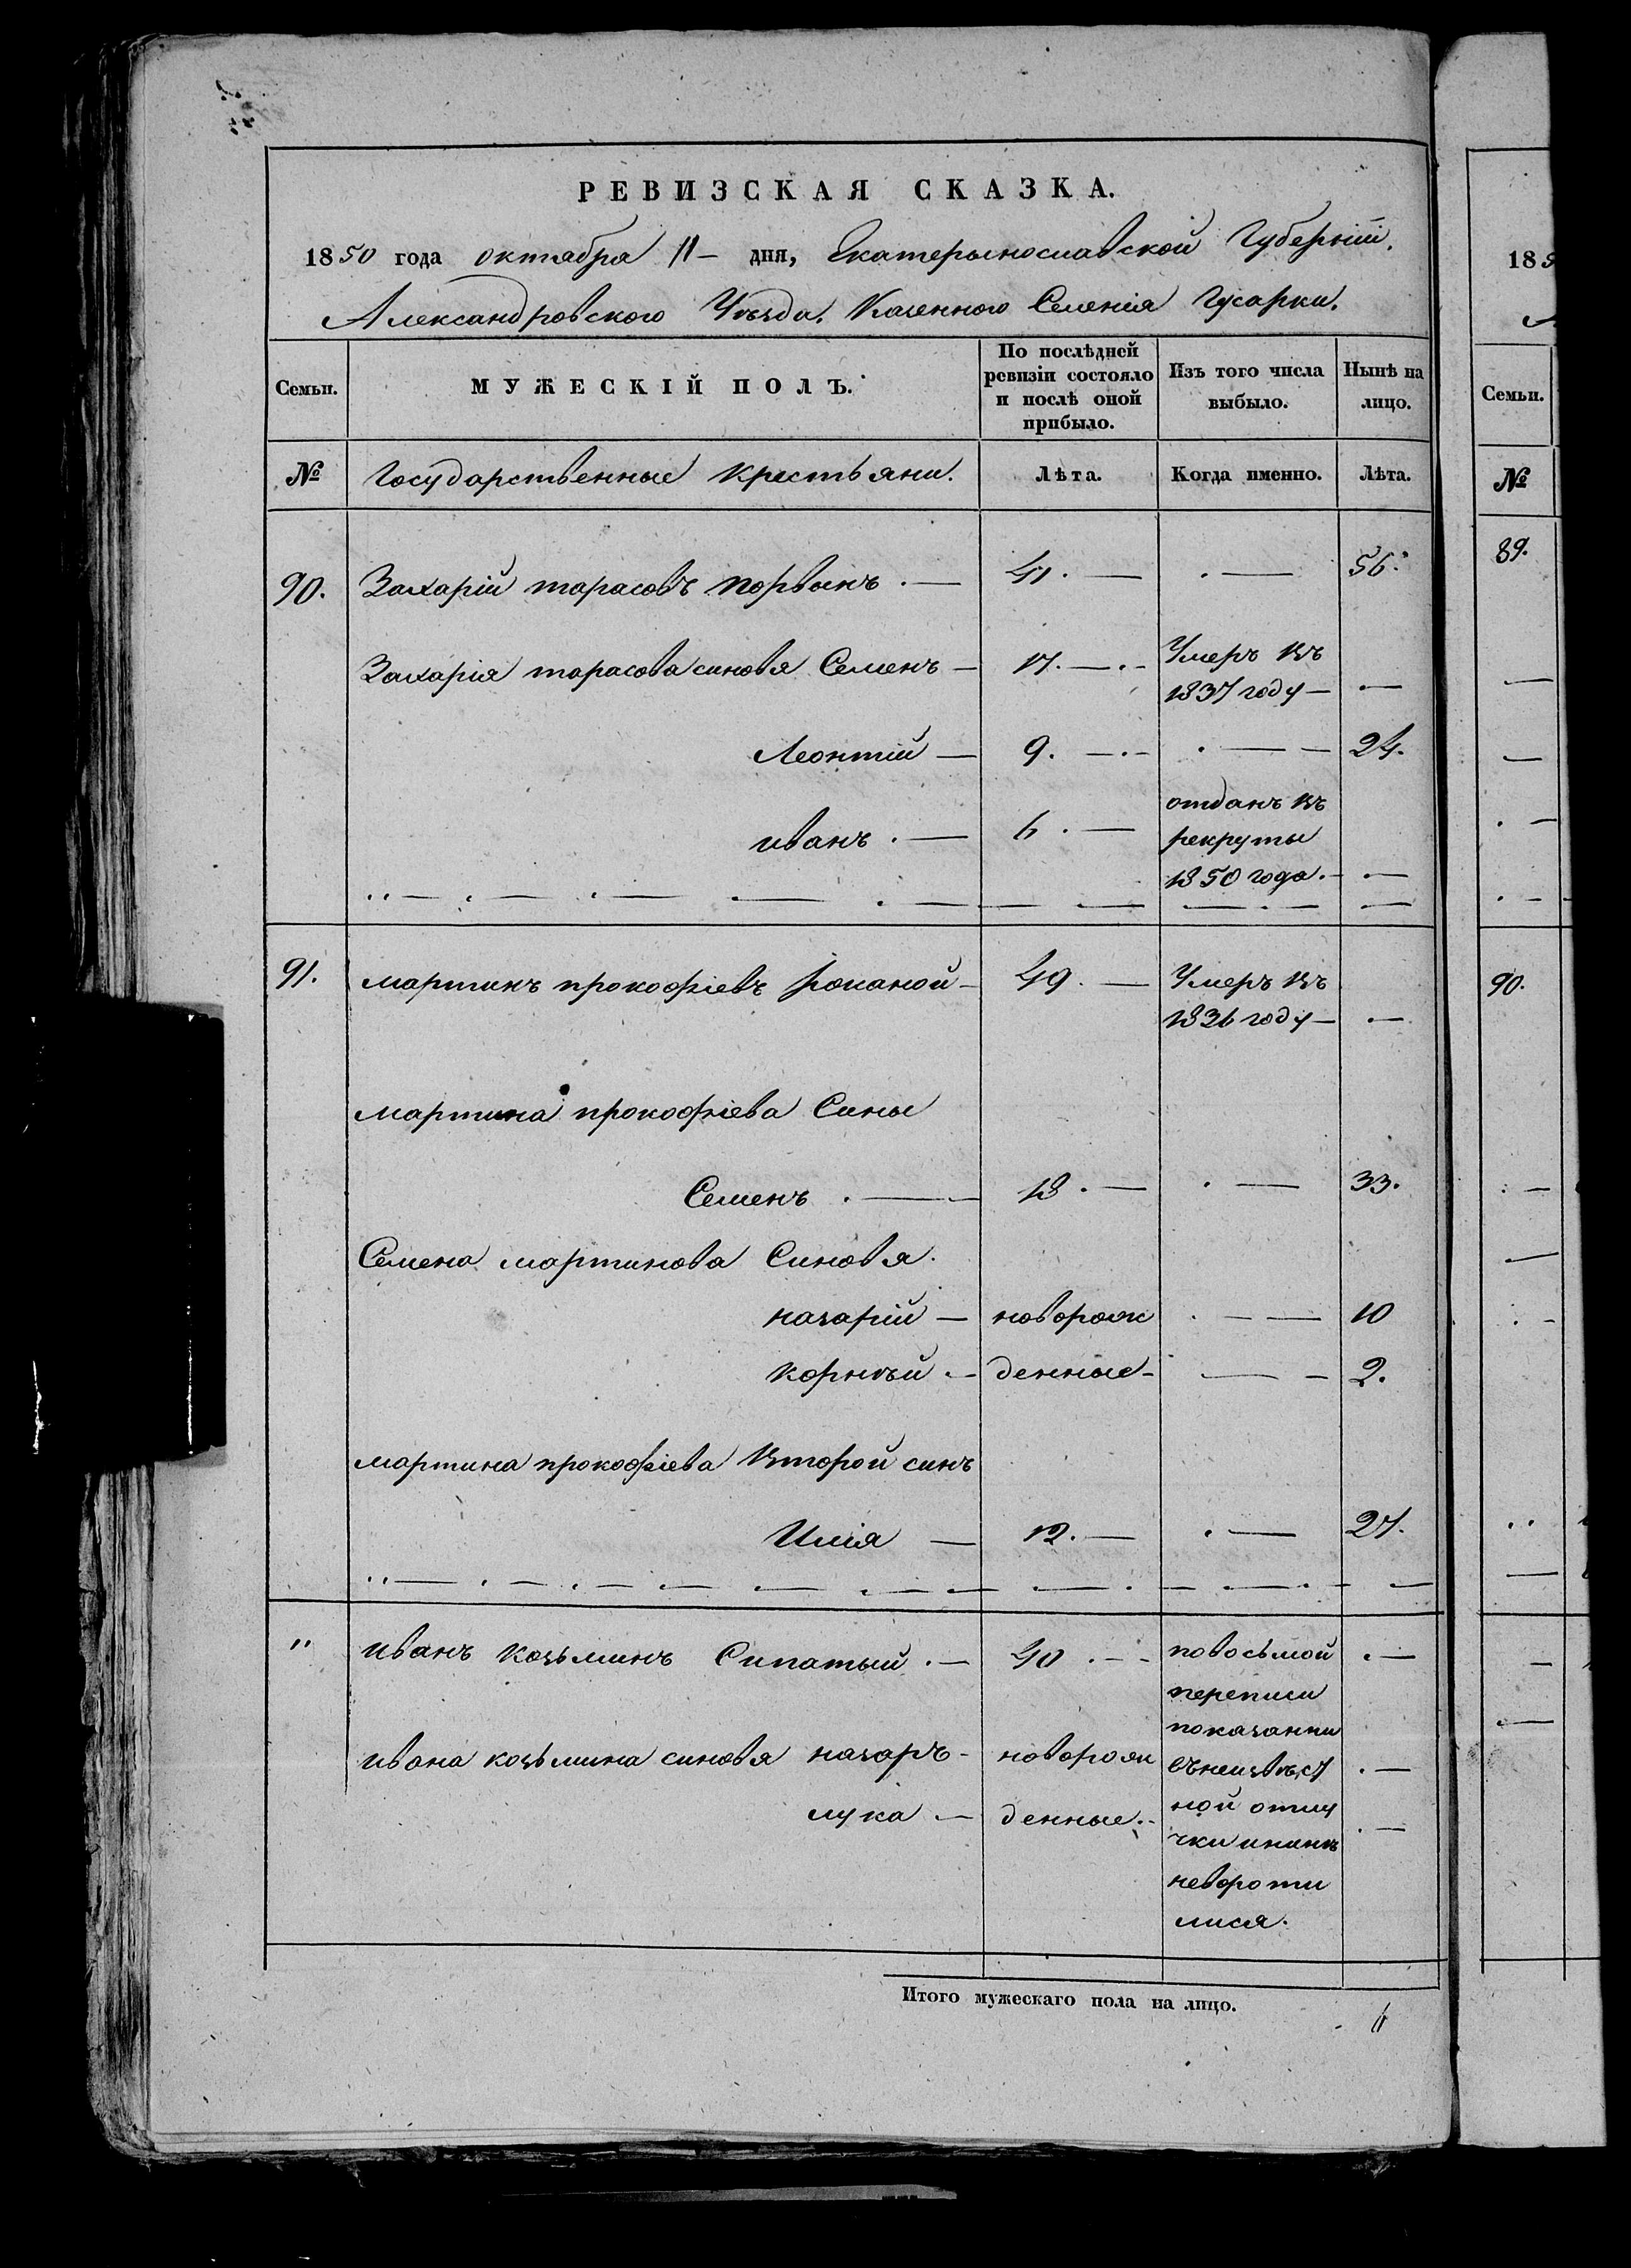 РЕВИЗСКАЯ СКАЗКА.
1850 года октября 11 – дня, Екатерынославской Губерніи.
Александровского Уѣзда. Казенного Селенія Гусарки.
Семьи. МУЖЕСКІЙ ПОЛЪ. По послѣдней ревизіи состояло и послѣ оной прибыло. Изъ того числа выбыло. Нынѣ на лицо.
№ Государственные крестьяни. Лѣта. Когда именно. Лѣта.
90. Захарій тарасовъ 41. — . — 56.
Захарія тарасова синовя Семенъ — 17. — Умеръ въ
1837 году — —
Леонтій — 9. — . — 24.
иванъ . — 6 . — отданъ въ
рекруты
1850 года. —
91. мартинъ прокофіевъ 49. — Умеръ въ
1836 году — —
мартина прокофіева Сины
Семенъ . — 18 . — . — 33.
Семена мартинова Синовя.
назарій — новорож . — 10
корнѣй . — денные — — 2.
мартина прокофіева Второй синъ
Илія — 12. — . — 27.
" иванъ козьминъ Сипатый . — 40 . — повосьмой . —
переписи
показанни
ивана козьмина синовя назаръ — новорож вънеизвѣст . —
лука — денные. ной отлу . —
чки инынѣ
невороти
лися.
Итого мужескаго пола на лицо. 6
185
Семьи.
№
89.
90.